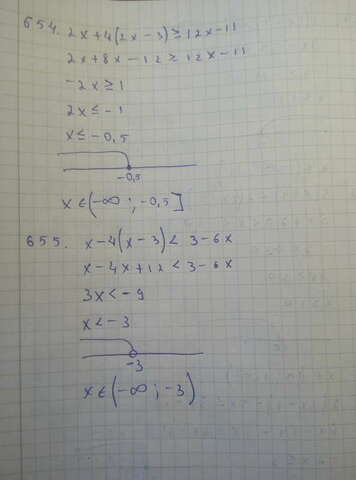 654. 2x+4(2x-3)≥12x-11
2x+8x-12≥12x-11
-2x≥1
2x≤-1
x≤-0,5
-0,5
x∈(-∞;-0,5]
655. x-4(x-3)<3-6x
x-4x+12<3-6x
3x<-9
x<-3
-3
x∈(-∞;-3)